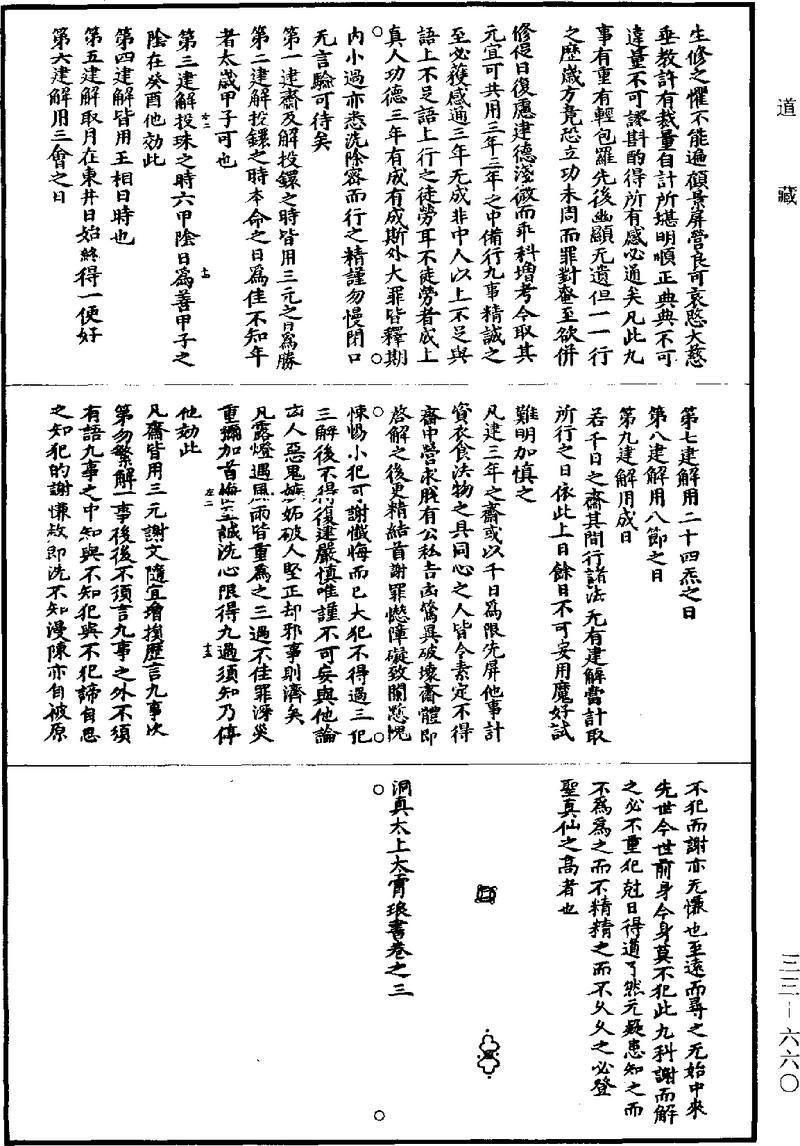 道藏
三三—六六〇
生修之懼不能遍顧景屏營良可哀愍大慈
垂教許有裁量自計所堪明順正典典不可
違量不可謬斟酌得所有感必通矣凡此九
事有重有輕包羅先後幽顯无遺但一一行
之歷歲方竟恐立功未周而罪對奄至欲併
修促日復慮建德淺微而乖科增考今取其
元宜可共用三年三年之中備行九事精誠之
至必獲感通三年无成非中人以上不足與
語上不足語上行之徒勞耳不徒勞者成上
真人功德三年有成有成斯外大罪皆釋期
內小過亦悉洗除密而行之精謹勿慢閉口
无言驗可待矣
第一建齋及解投鐶之時皆用三元之日為勝
第二建解投鐶之時本命之日為佳不知年
者太歲甲子可也
第三建解投珠之時六甲陰日為善甲子之
陰在癸酉他効此
第四建解皆用王相日時也
第五建解取月在東井日始終得一便好
第六建解用三會之日
第七建解用二十四炁之日
第八建解用八節之日
第九建解用成日
若千日之齋其間行諸法无有建解當計取
所行之日依此上日餘日不可妄用魔好試
難明加慎之
凡建三年之齋或以千日為限先屏他事計
資衣食法物之具同心之人皆令素定不得
齋中營求賤有公私吉凶驚異破壞齋體即
啓解之後更精結首謝罪愆障礙致闕慙愧
悚惕小犯可謝懺悔而已大犯不得過三犯
三解後不得復建嚴慎唯謹不可妄與他論
凶人惡鬼嫉妬破人堅正却邪事則濟矣
凡露燈遇風雨皆重為之三過不佳罪深災
重彌加首悔至誠洗心限得九過須知乃停
他効此
凡齋皆用三元謝文隨宜增損歷言九事次
第勿繁解一事後後不須言九事之外不須
有語九事之中知與不知犯與不犯諦自思
之知犯的謝慊赦即洗不知漫陳亦自被原
不犯而謝亦无慊也至遠而尋之无始中來
先世今世前身今身莫不犯此九科謝而解
之必不重犯尅日得道了然无疑患知之而
不為為之而不精精之而不久久之必登
聖真仙之高者也
洞真太上太霄琅書卷之三